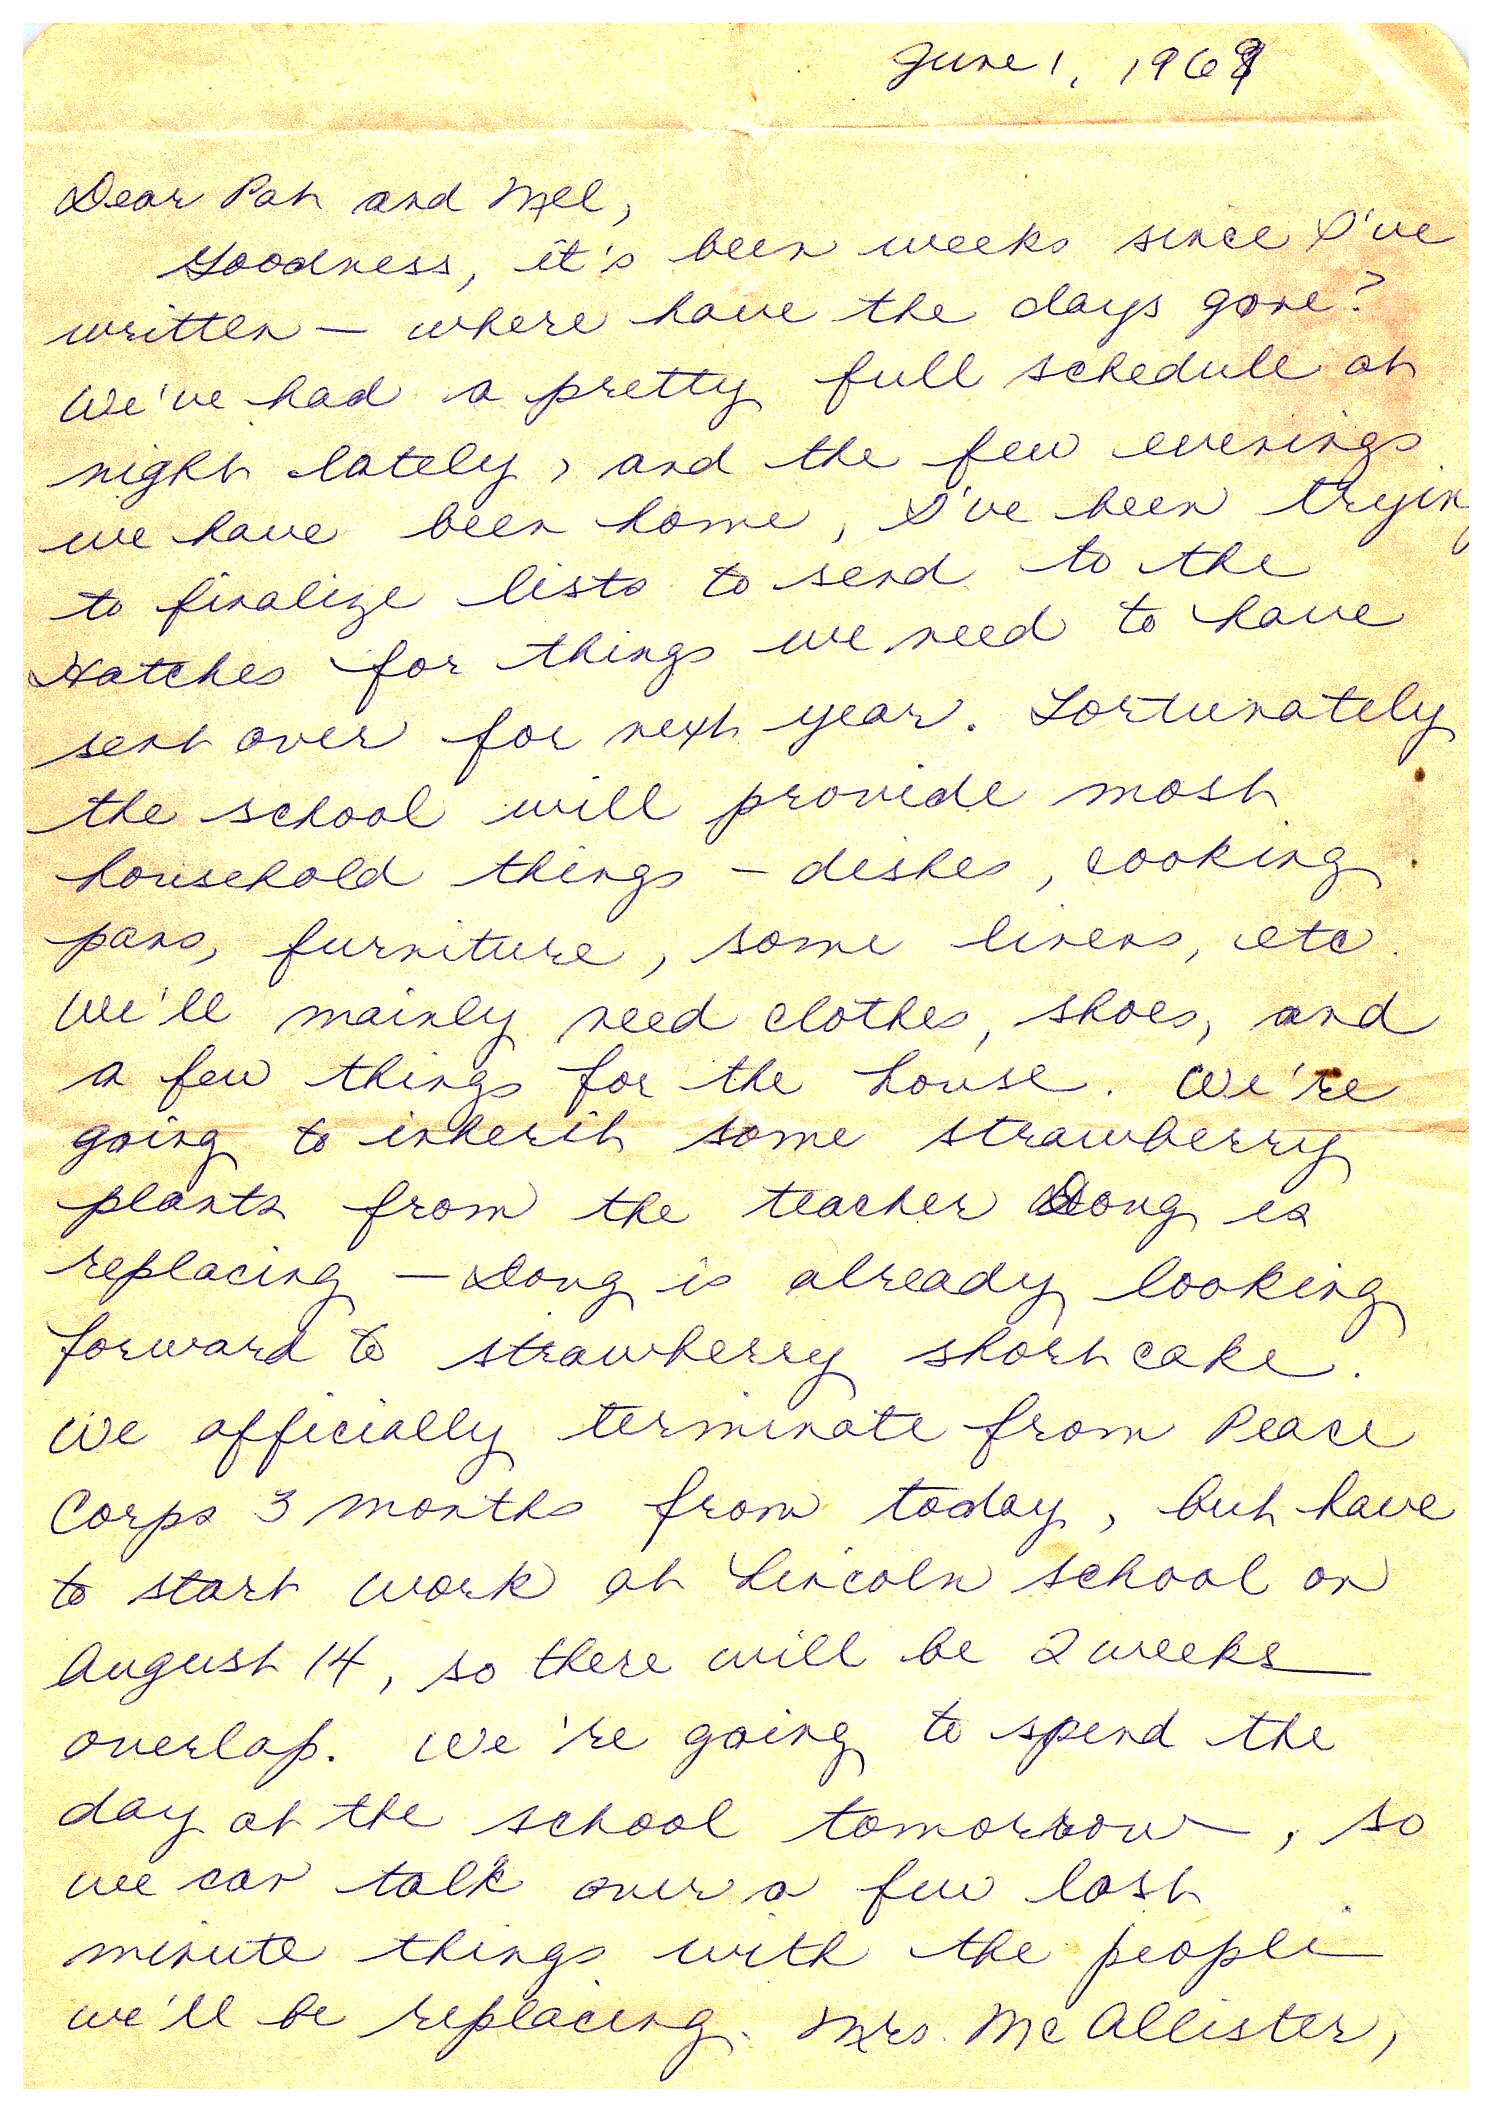 June 1, 1969
Dear Pat and Mel,
Goodness, it's been weeks since I've
written — where have the days gone?
We've had a pretty full schedule at
night lately, and the few evenings
we have been home, I've been trying
to finalize lists to send to the
Hatches for things we need to have
sent over for next year. Fortunately
the school will provide most
household things - dishes, cooking
pans, furniture, some linens, etc.
We'll mainly need clothes, shoes, and
a few things for the house. We're
going to inherit some strawberry
plants from the teacher Doug is
replacing — Doug is already looking
forward to strawberry short cake.
We officially terminate from Peace
Corps 3 months from today, but have
to start work at Lincoln School on
August 14, so there will be 2 weeks
overlap. We're going to spend the
day at the school tomorrow, so
we can talk over a few last
minute things with the people
we'll be replacing. Mrs. McAllister,